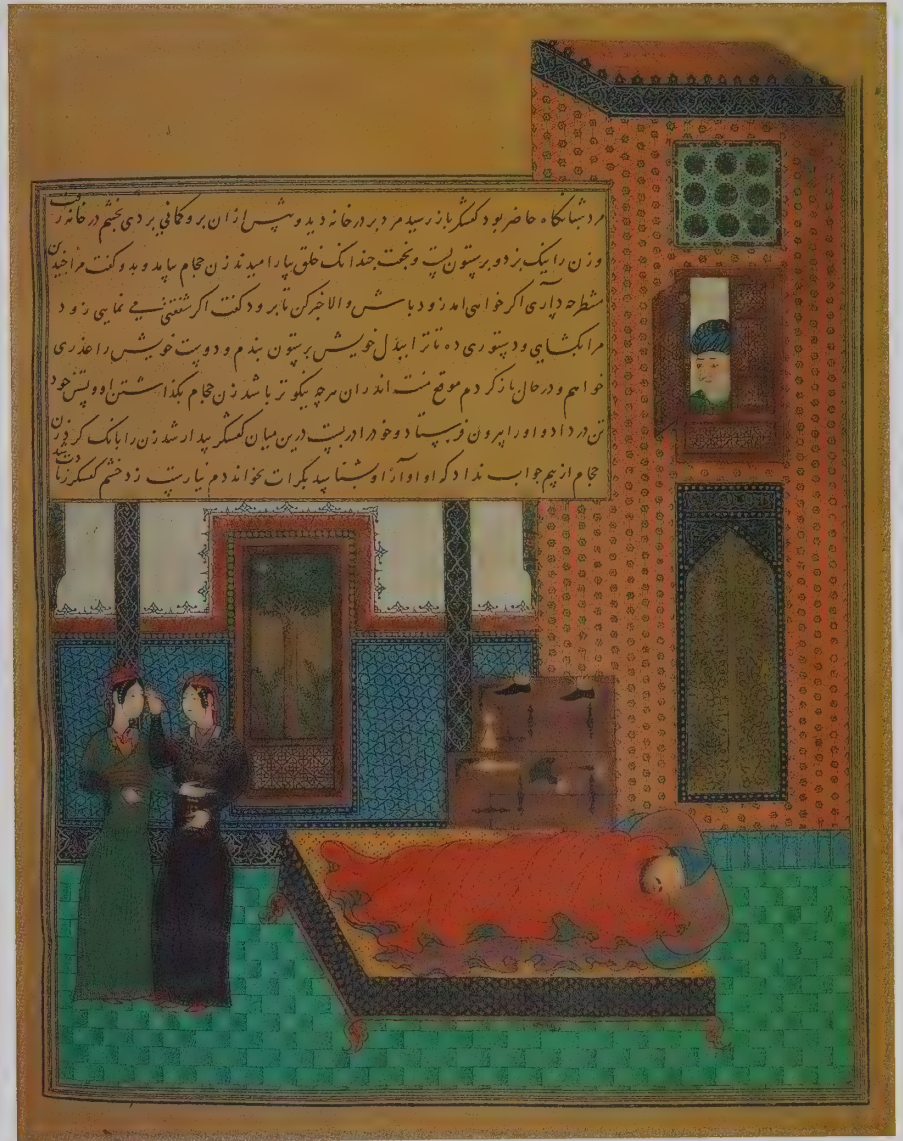 مرد شبانگاه حاضر بود کفشگر باز رسید مرد بر در خانه دید و پیش از آن بر و کمانی بر دی بخشم در خانه ر
و زن را نیک بزد و بر ستون بست و بخفت جندانک خلق بیارامیدند زن حجام بیامد و بدو گفت مرا جندین
منتظر چه داری اگر خواهی آمد زود باش و الا خبر کن تا برود گفت اگر شفقتی می نمایی زود
مرا بگشایی و دستوری ده تا ترا ببدل خویش بر ستون بندم و دوست خویش را عذری
خواهم و در حال بازگردم موقع منت اندران هرچه نیکوتر باشد زن حجام بگذاشتن او و بستن خود
تن در داد و او را بیرون فرستاد و خود را دربست درین میان کفشگر بیدار شد زن را بانک کرد زن
حجام از بیم جواب نداد که او آواز او بشناسد بکرات بخواند دم نیارست زد خشم کفشگر زیادت شد